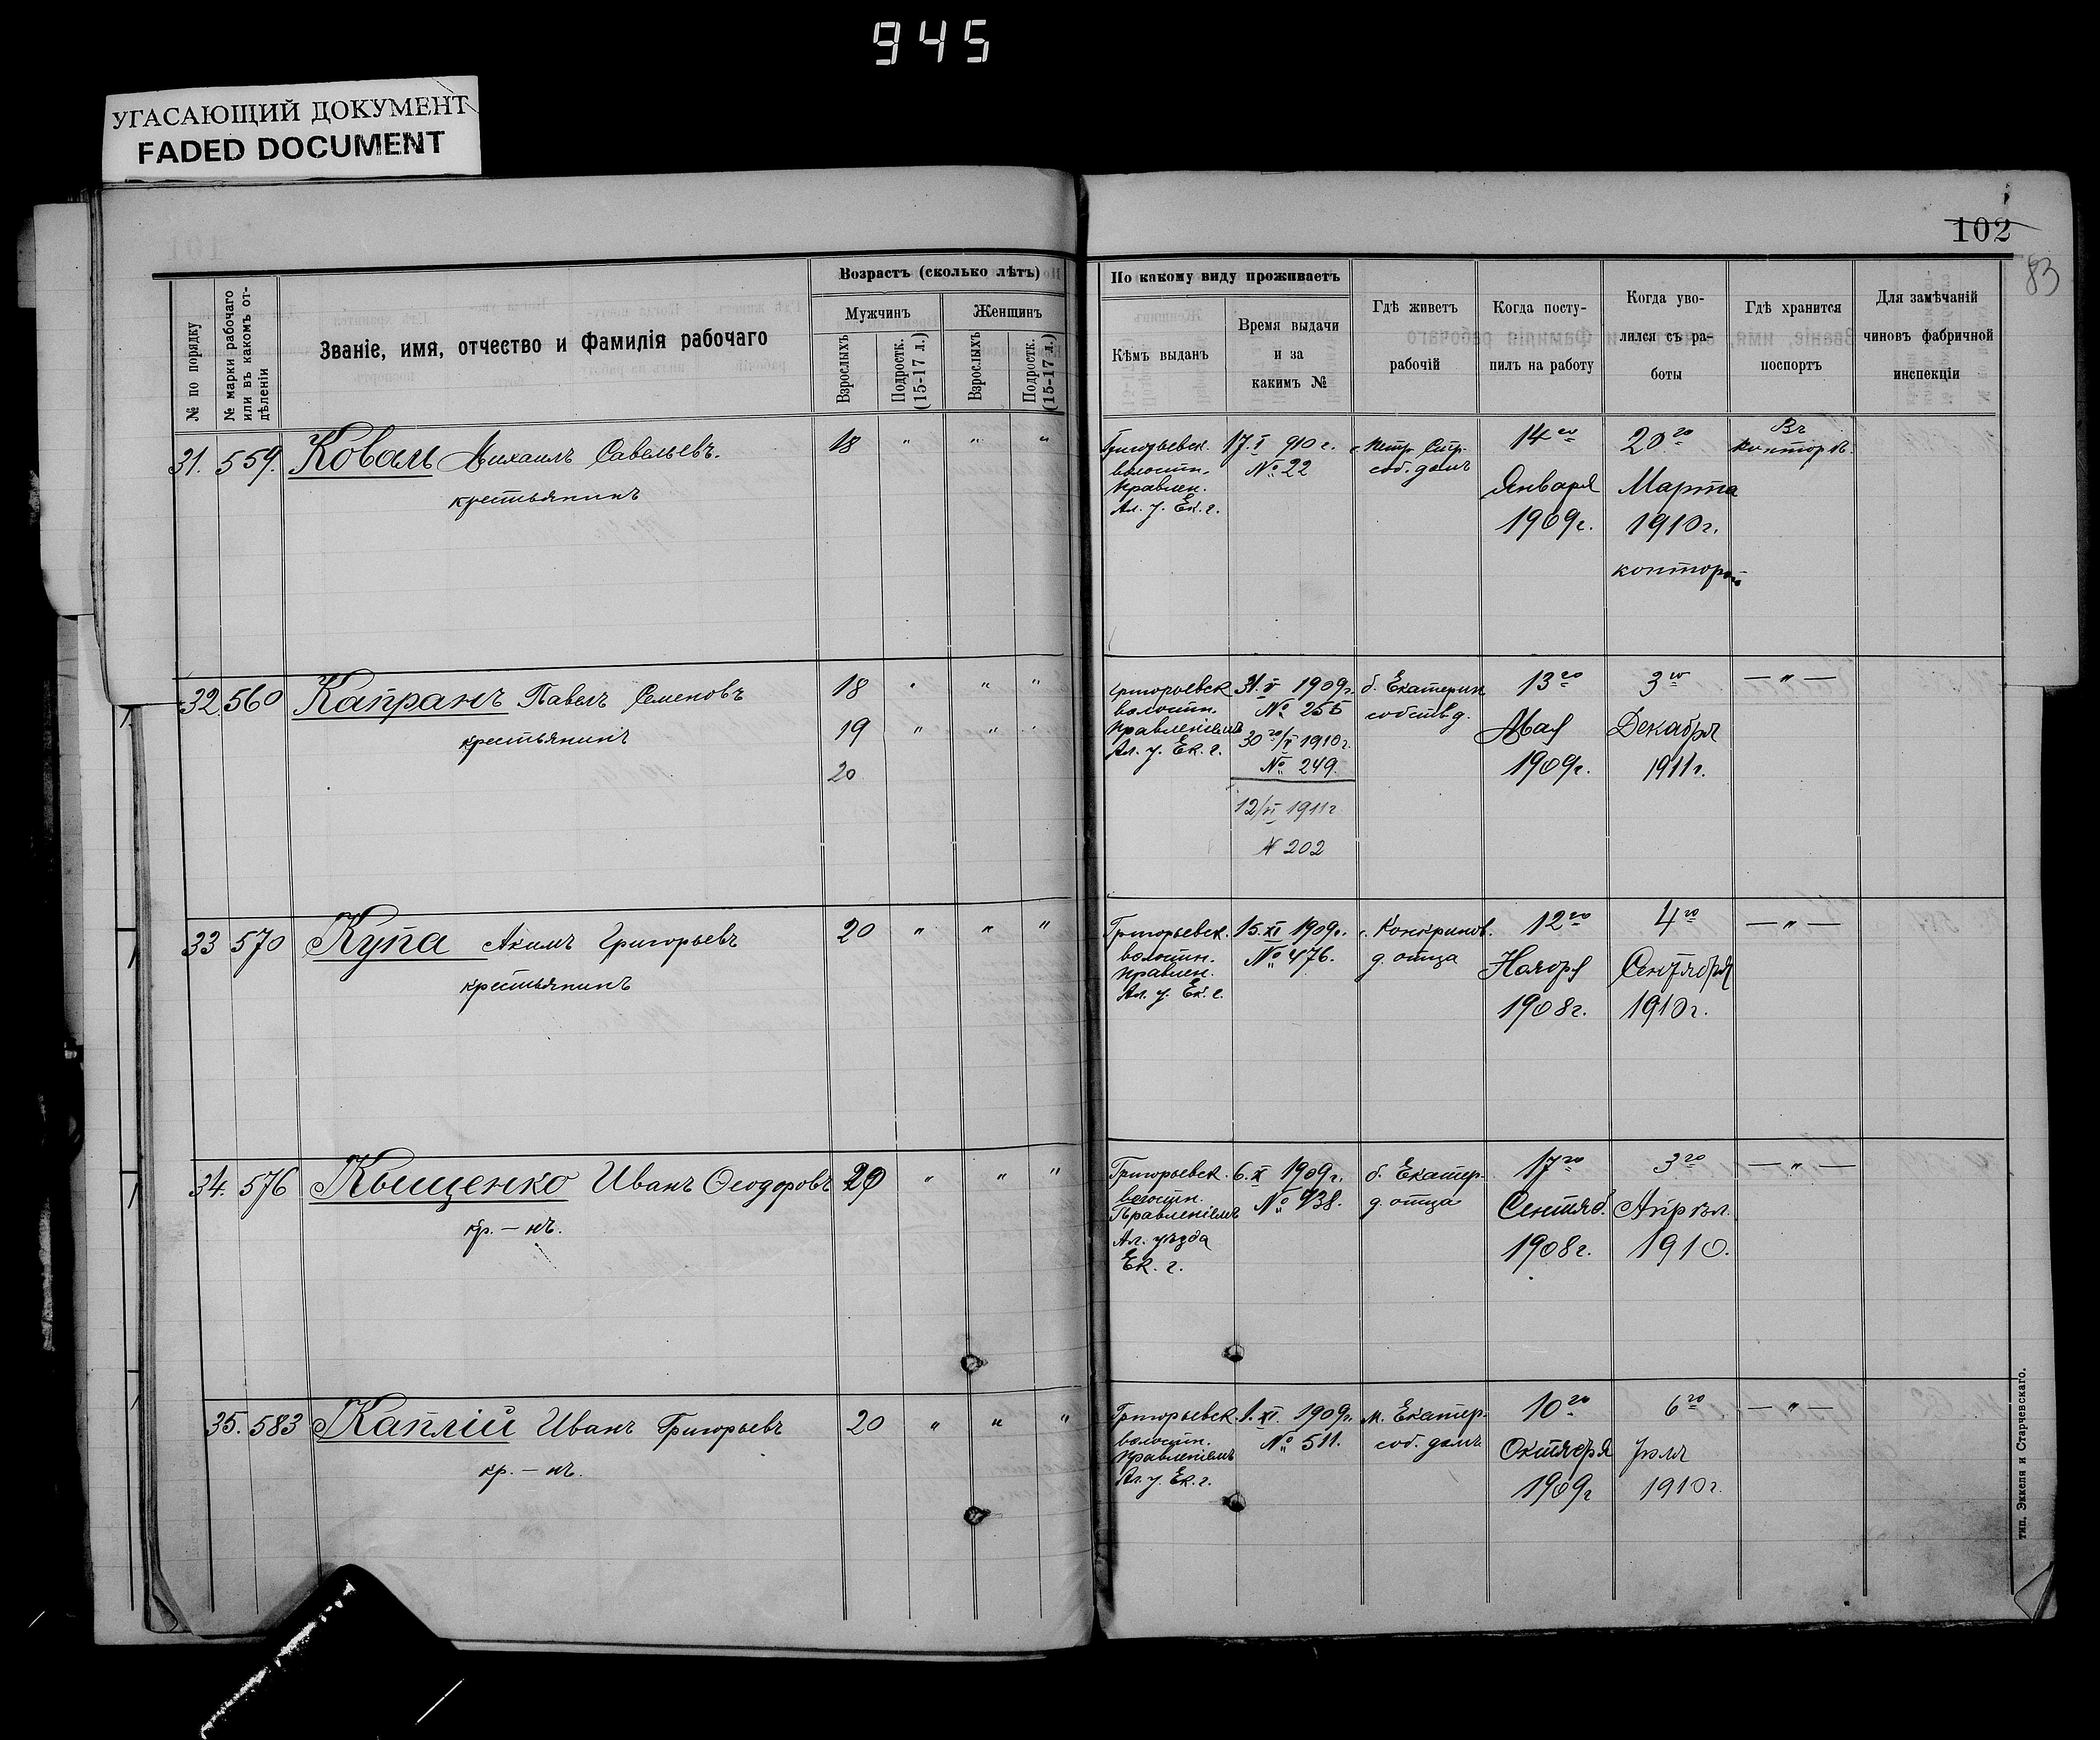 945
УГАСАЮЩИЙ ДОКУМЕНТ
FADED DOCUMENT
102
83
№ по порядку
№ марки рабочаго или въ какомъ отдѣленіи
Званіе, имя, отчество и фамилія рабочаго
Возрастъ (сколько лѣтъ)
Мужчинъ
Женщинъ
Взрослыхъ
Подростк. (15-17 л.)
Взрослыхъ
Подростк. (15-17 л.)
По какому виду проживаетъ
Кѣмъ выданъ
Время выдачи
и за
какимъ №
Гдѣ живетъ
рабочій
Когда посту-
пилъ на работу
Когда уво-
лился съ ра-
боты
Гдѣ хранится
поспортъ
Для замѣчаній
чиновъ фабричной
инспекціи
31. 559. Коваль Михаилъ Савельевъ.
крестьянинъ
18 " " "
Григорьевск.
волостн.
правлен.
Ал. у. Ек. г.
17. I 910 г.
№ 22
с. Петр. Стр.
соб. домъ
14го
Января
1909г.
20го
Марта
1910г.
конторой
Въ
конторѣ.
32 560 Капранъ Павелъ Семеновъ
крестьянинъ
18 " " "
19 " " "
20
Григорьевск
волостн.
правленіемъ
Ал. у. Ек. г.
31. V 1909г.
№ 255
30го/V 1910г.
№ 249.
12/VI 1911г
№ 202
б. Екатерин
собств д.
13го
Мая
1909г.
3го
Декабря
1911г.
— " —
33 570 Купа Акимъ Григорьевъ
крестьянинъ
20 " " "
Григорьевск.
волостн.
правлен.
Ал. у. Ек. г.
15. XI 1909г.
№ 476.
с. Конкринов.
д. отца
12го
Ноября
1908г.
4го
Сентября
1910г.
— " —
34. 576 Кыщенко Иванъ Ѳеодоровъ
кр. – нъ.
20 " " "
Григорьевск.
волостн.
Правленіемъ
Ал. уѣзда
Ек. г.
6. X 1909г.
№ 438.
б. Екатер.
д. отца
17го
Сентяб.
1908г.
3го
Апрѣл.
1910.
— " —
35. 583 Каплій Иванъ Григорьевъ
кр. – нъ.
20 " " "
Григорьевск.
волостн.
правленіемъ
Ал. у. Ек. г.
1. XI. 1909г.
№ 511.
м. Екатер.
соб. домъ
10го
Октября
1909г
6го
1910г.
— " —
тип. Эккеля и Старчевскаго.